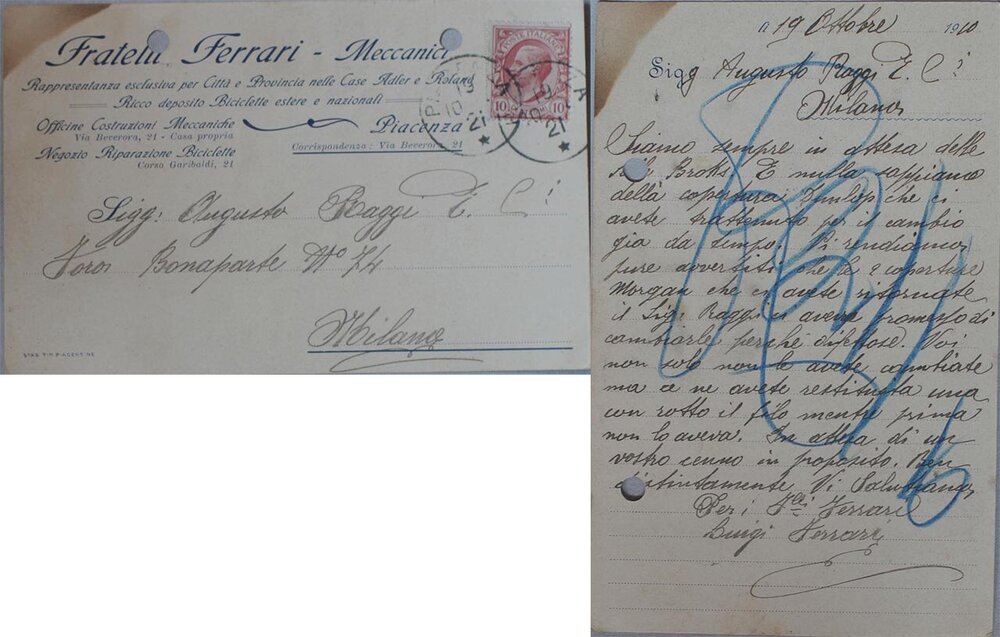 Fratelli Ferrari - Meccanici
Rappresentanza esclusiva per Città e Provincia nelle Case Adler e Roland
Ricco deposito Biciclette estere e nazionali
Officine Costruzioni Meccaniche
Via Beverora, 21 - Casa propria
Negozio Riparazione Biciclette
Corso Garibaldi, 21
Piacenza
Corrispondenza: Via Beverora 21
POSTE ITALIANE
10 10
19
10
21
19
21
Sigg: Augusto Raggi E. C.i
Foro Bonaparte No 74
Milano
STAB. TIP. PIACENTINO
a 19 Ottobre 1910
Sigg Augusto Raggi E. C.i
Milano
Siamo sempre in attesa delle
Brotts. E nulla sappiamo
della copertura Dunlop che ci
avete trattenuto per il cambio
gia da tempo. Vi rendiamo
pure avvertiti che le 2 coperture
Morgan che ci avete ritornate
il Sigr Raggi ci aveva promesso di
cambiarle perché difettose. Voi
non solo non le avete cambiate
ma ce ne avete restituita una
con rotto il filo mentre prima
non lo aveva. In attesa di un
vostro cenno in proposito. Ben
distintamente Vi Salutiamo
Per i Flli Ferrari
Luigi Ferrari